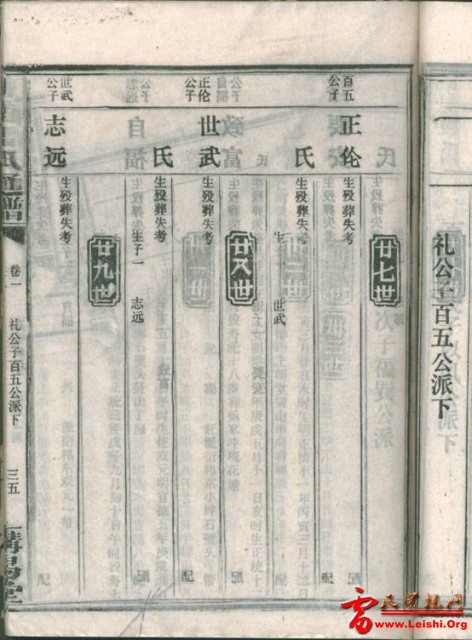 礼公子百五公派下
廿七世
百五公子
正伦
生殁葬失考
配
氏
生殁葬失考
生子一
世武
廿八世
正伦公子
世武
生殁葬失考
配
氏
生殁葬失考
生子一
志远
廿九世
世武公子
志远
生殁葬失考
配
氏通譜
卷一
礼公子百五公派下
三五
堂
www.Leishi.Org